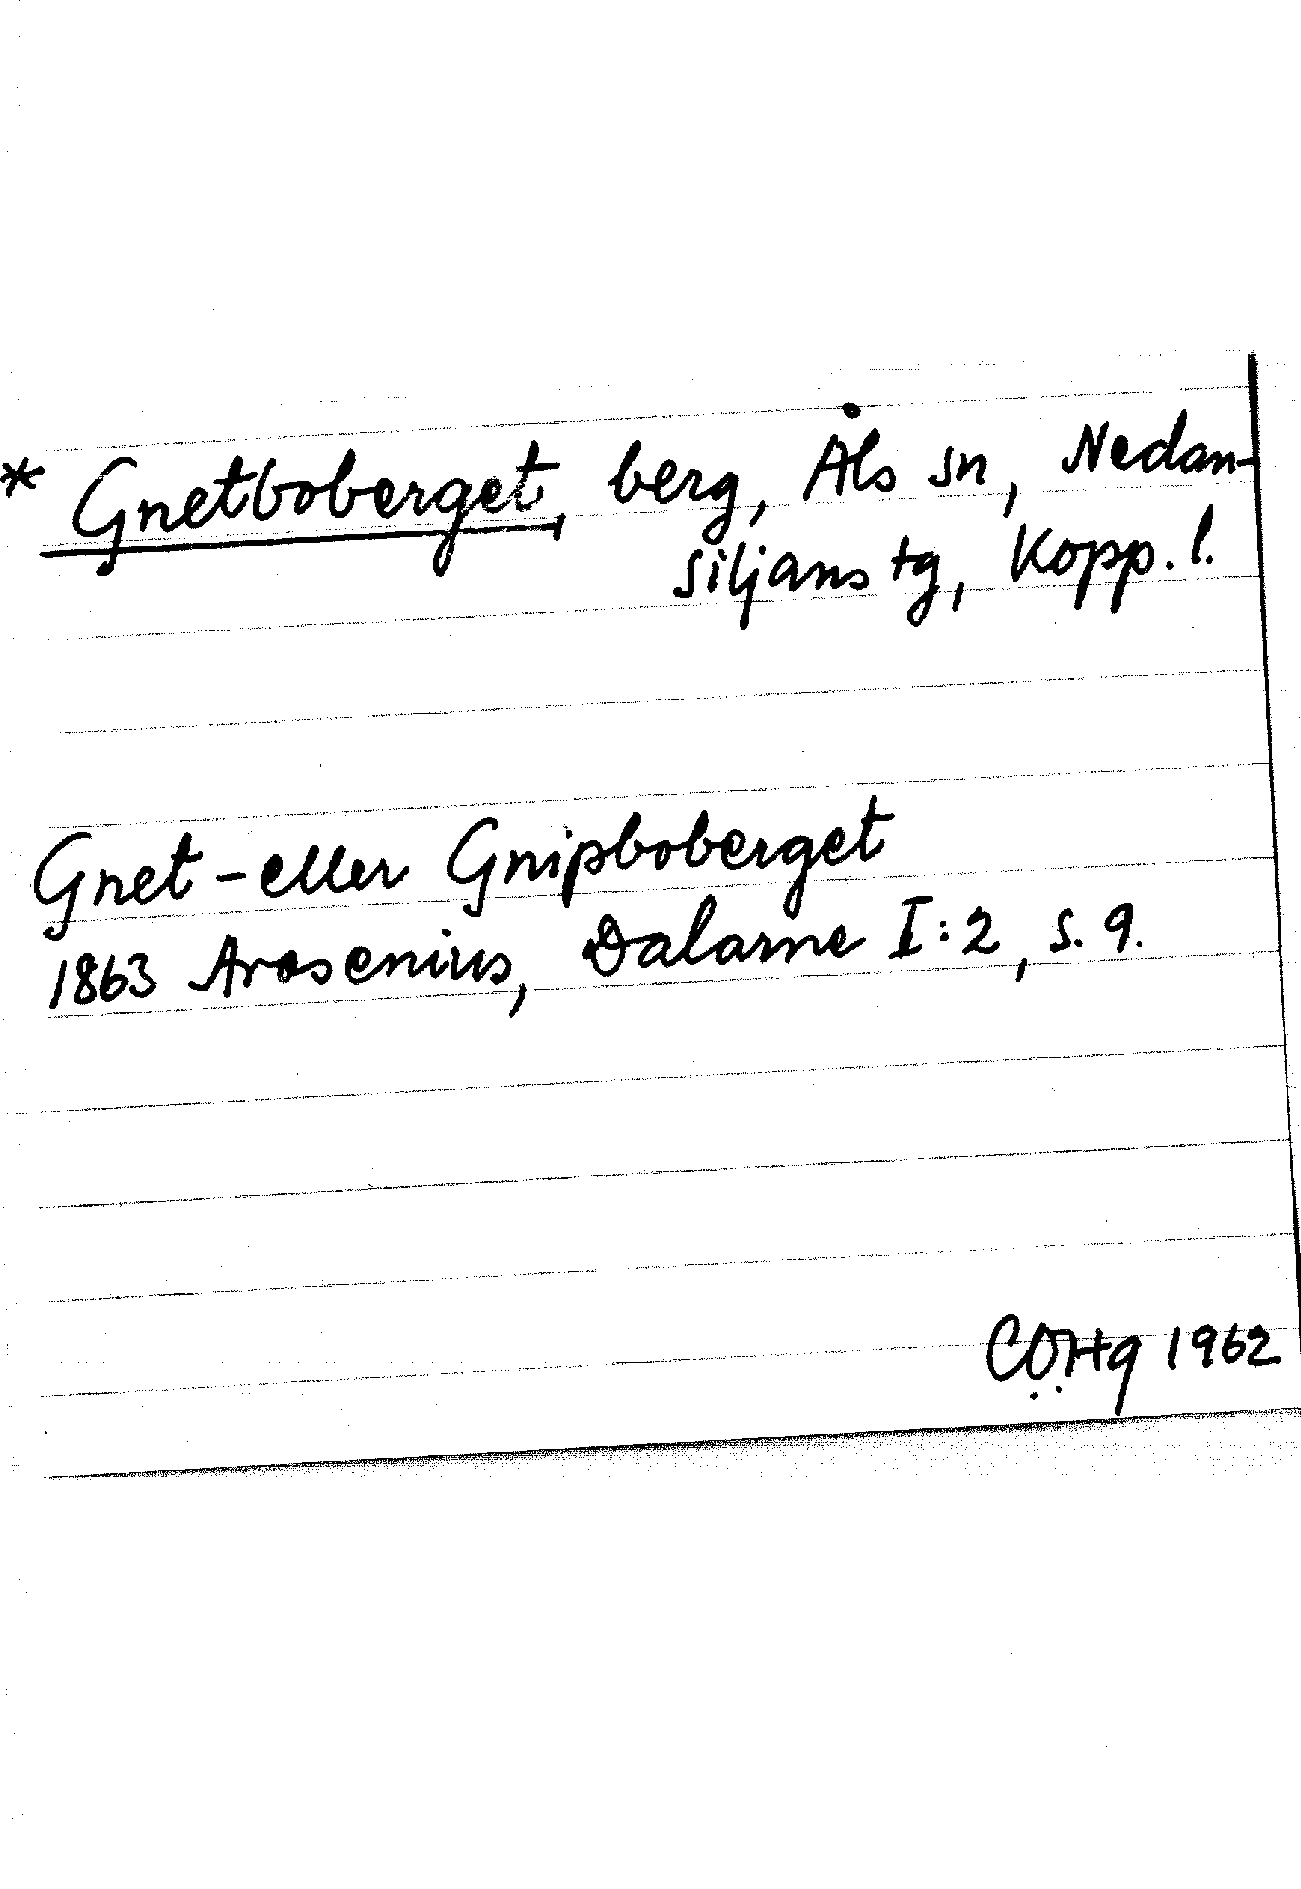 * Gnetboberget, berg, Åls sn, Nedan-
siljans tg, Kopp. l.
Gnet- eller Gnipboberget
1863 Arosenius, Dalarne I:2, s. 9.
CÖHg 1962